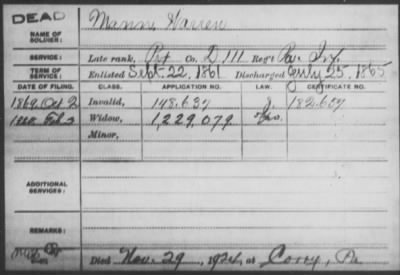 DEAD
NAME OF SOLDIER: Mann Warren
SERVICE: Late rank, Prt Co. D 111 Reg't Pa. Inf.
TERM OF SERVICE: Enlisted Sept. 22, 1861 Discharged July 25, 1865
DATE OF FILING. CLASS. APPLICATION NO. LAW. CERTIFICATE NO.
1869, Oct 2 Invalid, 148.637 182.607
Widow, 1,229,079
Minor,
ADDITIONAL SERVICES:
REMARKS:
Died Nov. 29, 1924, at Corry, Pa